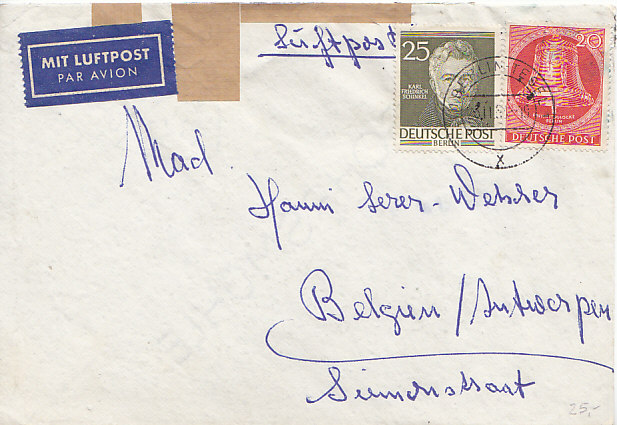 MIT LUFTPOST
PAR AVION
Luftpost
25
KARL
FRIEDRICH
SCHINKEL
DEUTSCHE POST
BERLIN
20
DEUTSCHE POST
x
Mad.
Hanni
Belgien / Antwerpen
25,-